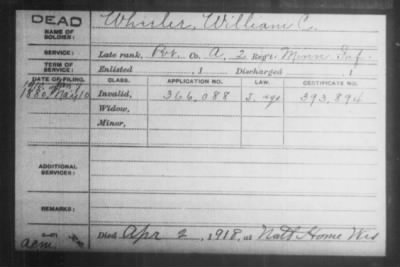 DEAD
NAME OF SOLDIER:
Whisler, William C.
SERVICE:
Late rank, Pvt. Co. A, 2 Reg't Minn Inf.
TERM OF SERVICE:
Enlisted , 1 Discharged , 1
DATE OF FILING. CLASS. APPLICATION NO. LAW. CERTIFICATE NO.
1880, May 10 Invalid, 366,088 393,894
Widow,
Minor,
ADDITIONAL SERVICES:
REMARKS:
Died Apr 2, 1918, at Natl Home Wis